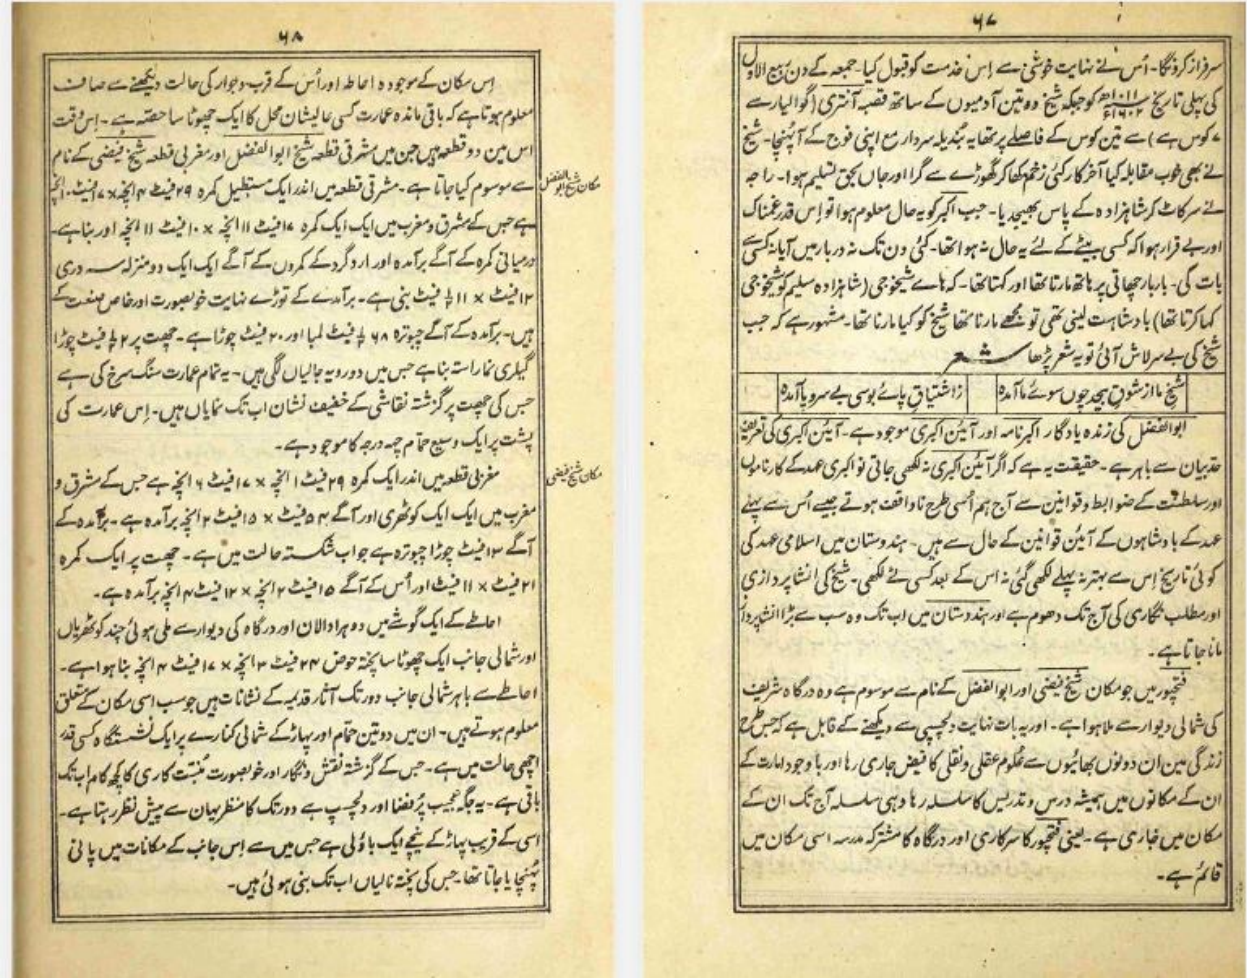 ۶۷
سرفراز کرونگا۔ اُس نے نہایت خوشی سے اِس خدمت کو قبول کیا۔ جمعہ کے دن ربیع الاول
کی پہلی تاریخ ۱۰۱۱ھ ۱۶۰۲ء کو جبکہ شیخ دو تین آدمیوں کے ساتھ قصبہ آنتری (گوالیار سے
۷ کوس ہے) سے تین کوس کے فاصلے پر تھا یہ بندیلہ سردار مع اپنی فوج کے آپہُنچا۔ شیخ
نے بھی خوب مقابلہ کیا آخر کار کئی زخم کھا کر گھوڑے سے گرا اور جاں بحق تسلیم ہوا۔ راجہ
نے سر کاٹ کر شاہزادہ کے پاس بھیجدیا۔ جب اکبر کو یہ حال معلوم ہوا تو اِس قدر غمناک
اور بے قرار ہوا کہ کسی بیٹے کے لئے یہ حال نہ ہوا تھا۔ کئی دن تک نہ دربار میں آیا نہ کسی سے
بات کی۔ بار بار چھاتی پر ہاتھ مارتا تھا اور کہتا تھا۔ کہ ہاے شیخو جی (شاہزادہ سلیم کو شیخو جی
کہا کرتا تھا) بادشاہت لینی تھی تو مجھے مارنا تھا شیخ کو کیا مارنا تھا۔ مشہور ہے کہ جب
شیخ کی بے سر لاش آئی تو یہ شعر پڑھا شعر
شیخ ما از شوقِ بیحد چوں سوئے ما آمدہ زاشتیاقِ پائے بوسی بے سر و پا آمدہ
ابوالفضل کی زندہ یادگار اکبر نامہ اور آئین اکبری موجود ہے۔ آئین اکبری کی تعریف
حدِ بیان سے باہر ہے۔ حقیقت یہ ہے کہ اگر آئین اکبری نہ لکھی جاتی تو اکبری عہد کے کارناموں
اور سلطنت کے ضوابط و قوانین سے آج ہم اُسی طرح ناواقف ہوتے جیسے اُس سے پہلے
عہد کے بادشاہوں کے آئین قوانین کے حال سے ہیں۔ ہندوستان میں اسلامی عہد کی
کوئی تاریخ اِس سے بہتر نہ پہلے لکھی گئی نہ اس کے بعد کسی نے لکھی۔ شیخ کی انشا پردازی
اور مطلب نگاری کی آج تک دھوم ہے اور ہندوستان میں اب تک وہ سب سے بڑا انشا پرداز
مانا جاتا ہے۔
فتحپور میں جو مکان شیخ فیضی اور ابوالفضل کے نام سے موسوم ہے وہ درگاہ شریف
کی شمالی دیوار سے ملا ہوا ہے۔ اور یہ بات نہایت دلچسپی سے دیکھنے کے قابل ہے کہ جس طرح
زندگی میں ان دونوں بھائیوں سے علوم عقلی و نقلی کا فیض جاری رہا اور باوجود امارت کے
ان کے مکانوں میں ہمیشہ درس و تدریس کا سلسلہ رہا وہی سلسلہ آج تک ان کے
مکان میں جاری ہے۔ یعنی فتحپور کا سرکاری اور درگاہ کا مشترکہ مدرسہ اسی مکان میں
قائم ہے۔
۶۸
اِس مکان کے موجودہ احاطہ اور اُس کے قرب و جوار کی حالت دیکھنے سے صاف
معلوم ہوتا ہے کہ باقی ماندہ عمارت کسی عالیشان محل کا ایک چھوٹا سا حصّہ ہے۔ اِس وقت
اس میں دو قطعہ ہیں جن میں مشرقی قطعہ شیخ ابوالفضل اور مغربی قطعہ شیخ فیضی کے نام
مکان شیخ ابوالفضل
سے موسوم کیا جاتا ہے۔ مشرقی قطعہ میں اندر ایک مستطیل کمرہ ۲۹ فیٹ ۴ اِنچہ × ۱۷ فیٹ ۱۰ اِنچہ
ہے جس کے مشرق و مغرب میں ایک ایک کمرہ ۱۷ فیٹ ۱۱ اِنچہ × ۱۰ فیٹ ۱۱ اِنچہ اور بنا ہے۔
درمیانی کمرہ کے آگے برآمدہ اور اردگرد کے کمروں کے آگے ایک ایک دو منزلہ سہ دری
۱۲ فیٹ × ۱۱ ½ فیٹ بنی ہے۔ برآمدے کے توڑے نہایت خوبصورت اور خاص صنعت کے
ہیں۔ برآمدہ کے آگے چبوترہ ۶۸ ½ فیٹ لمبا اور ۲۰ فیٹ چوڑا ہے۔ چھت پر ۲ ½ فیٹ چوڑا
گیلری نما راستہ بنا ہے جس میں دو رویہ جالیاں لگی ہیں۔ یہ تمام عمارت سنگ سرخ کی ہے
جس کی چھت پر گزشتہ نقاشی کے خفیف نشان اب تک نمایاں ہیں۔ اِس عمارت کی
پشت پر ایک وسیع حمام چہ درجہ کا موجود ہے۔
مکان شیخ فیضی
مغربی قطعہ میں اندر ایک کمرہ ۲۹ فیٹ ۱ اِنچہ × ۱۷ فیٹ ۶ اِنچہ ہے جس کے مشرق و
مغرب میں ایک ایک کوٹھری اور آگے ۵۴ فیٹ × ۱۵ فیٹ ۲ اِنچہ برآمدہ ہے۔ برآمدہ کے
آگے ۱۳ فیٹ چوڑا چبوترہ ہے جو اب شکستہ حالت میں ہے۔ چھت پر ایک کمرہ
۲۱ فیٹ × ۱۱ فیٹ اور اُس کے آگے ۱۵ فیٹ ۲ اِنچہ × ۱۲ فیٹ ۴ اِنچہ برآمدہ ہے۔
احاطے کے ایک گوشے میں دوہرا دالان اور درگاہ کی دیوار سے ملی ہوئی چند کوٹھریاں
اور شمالی جانب ایک چھوٹا سا پختہ حوض ۲۴ فیٹ ۳ اِنچہ × ۱۷ فیٹ ۴ اِنچہ بنا ہوا ہے۔
احاطے سے باہر شمالی جانب دور تک آثار قدیمہ کے نشانات ہیں جو سب اسی مکان کے متعلق
معلوم ہوتے ہیں۔ ان میں دو تین حمّام اور پہاڑ کے شمالی کنارے پر ایک نشستگاہ کسی قدر
اچھی حالت میں ہے۔ جس کے گزشتہ نقش و نگار اور خوبصورت مُنبّت کاری کا کچھ کام اب تک
باقی ہے۔ یہ جگہ عجیب پُر فضا اور دلچسپ ہے دور تک کا منظر یہاں سے پیش نظر رہتا ہے۔
اسی کے قریب پہاڑ کے نیچے ایک باؤلی ہے جس میں سے اِس جانب کے مکانات میں پانی
پہُنچایا جاتا تھا۔ جس کی پختہ نالیاں اب تک بنی ہوئی ہیں۔